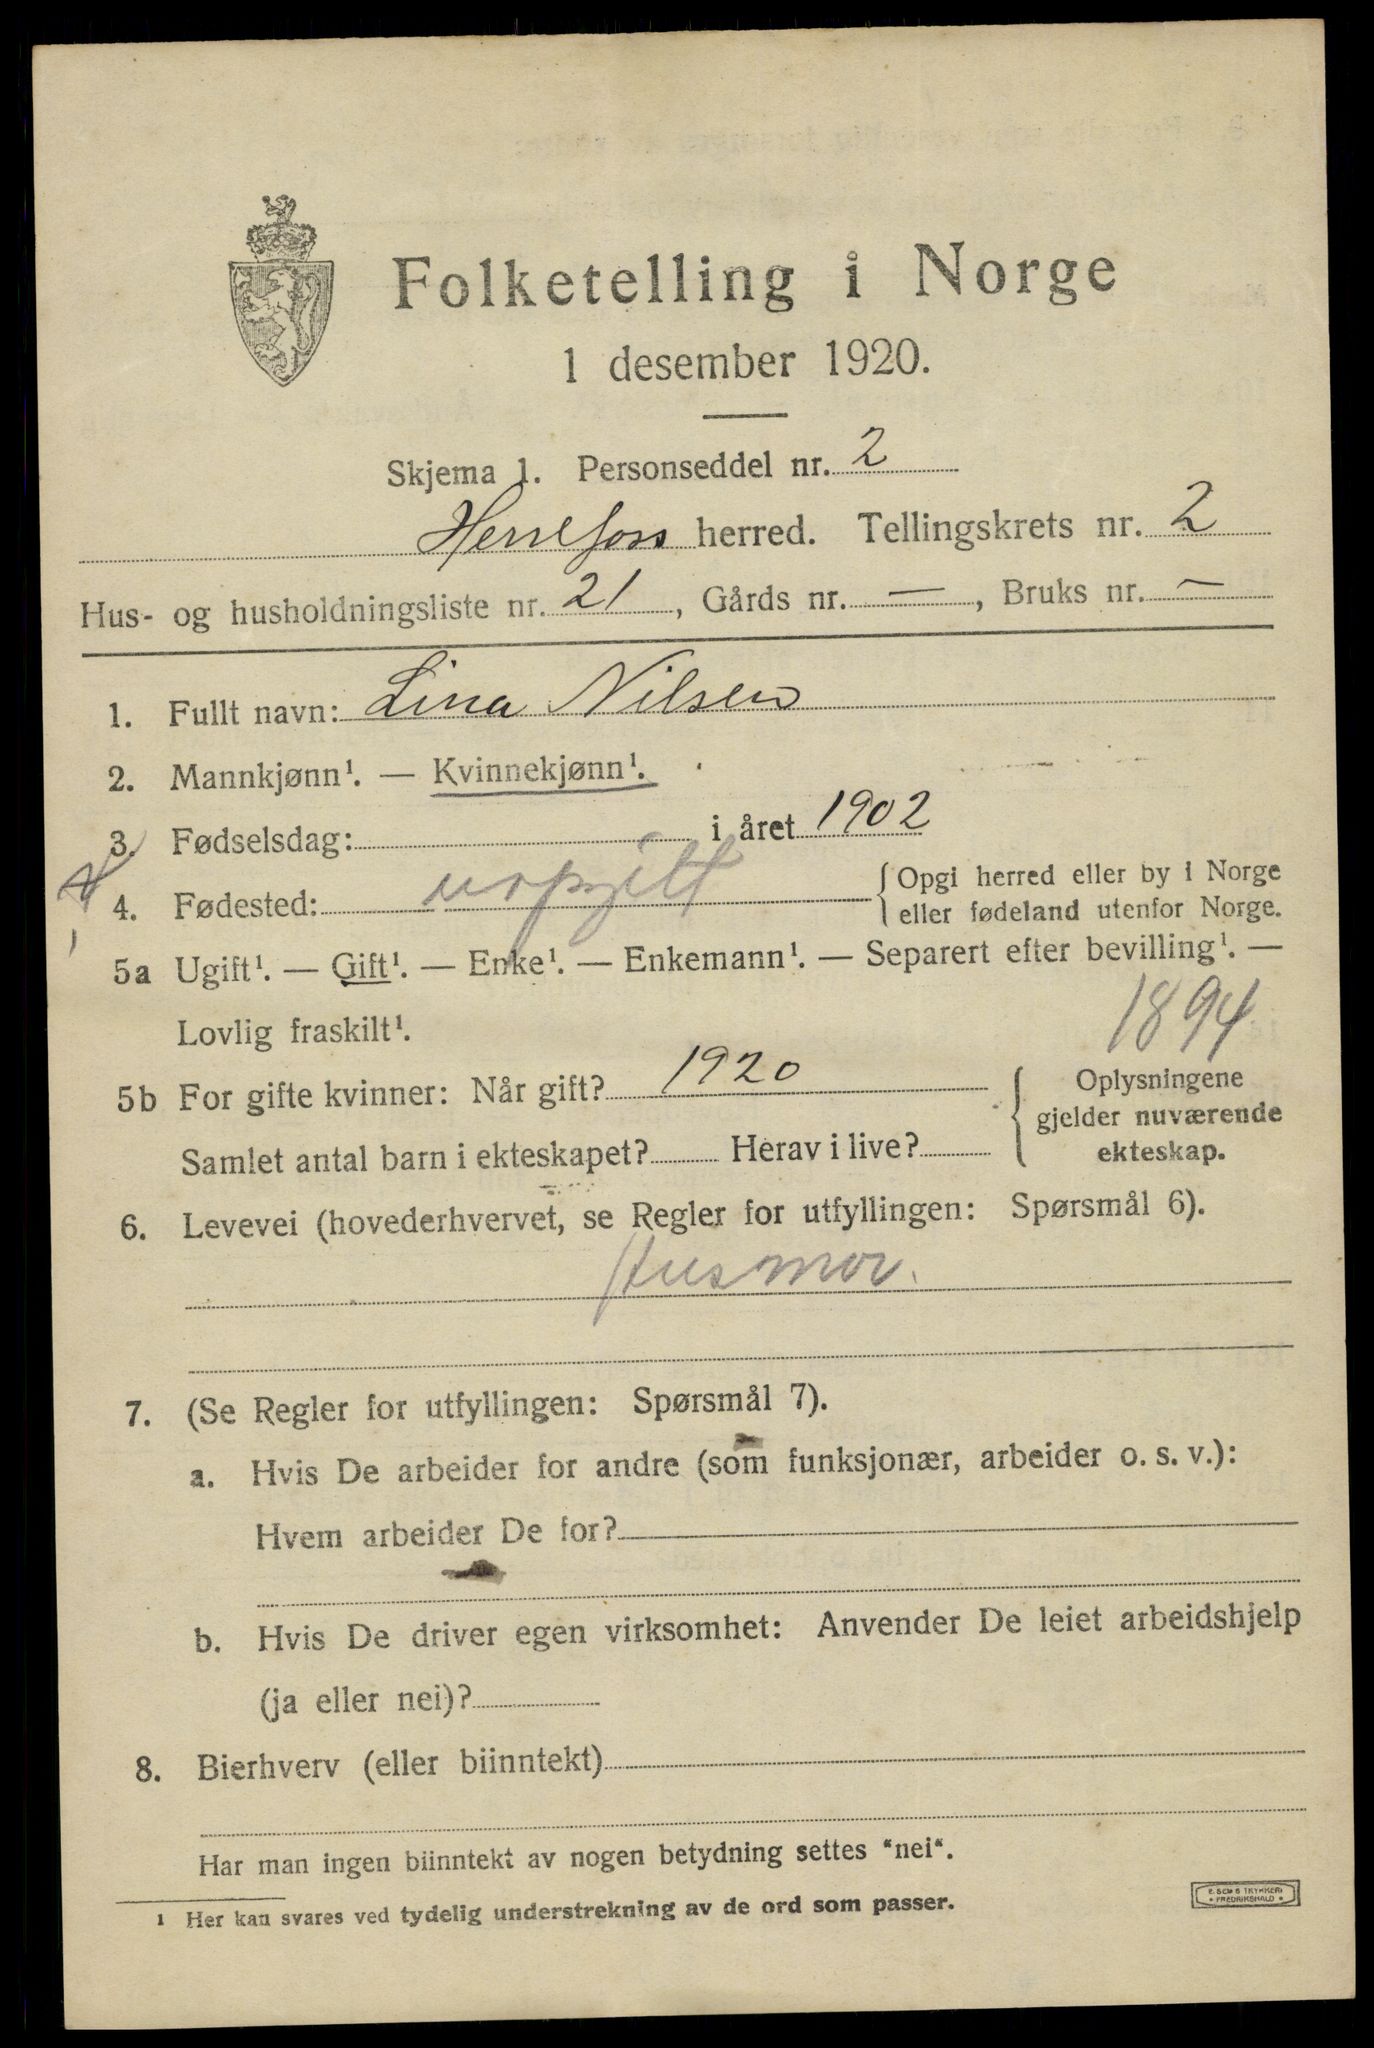 Folketelling i Norge
1 desember 1920.
Skjema 1. Personseddel nr. 2
Herrefoss herred. Tellingskrets nr. 2
Hus- og husholdningsliste nr. 21, Gårds nr. —, Bruks nr. —
1. Fullt navn: Lina Nilsen
2. Mannkjønn¹. — Kvinnekjønn¹.
3. Fødselsdag: i året 1902
4. Fødested: uopgitt { Opgi herred eller by i Norge
eller fødeland utenfor Norge.
5a Ugift¹. — Gift¹. — Enke¹. — Enkemann¹. — Separert efter bevilling¹. —
Lovlig fraskilt¹.
1894
5b For gifte kvinner: Når gift? 1920
Samlet antal barn i ekteskapet? Herav i live?
{ Oplysningene
gjelder nuværende
ekteskap.
6. Levevei (hovederhvervet, se Regler for utfyllingen: Spørsmål 6).
Husmor.
7. (Se Regler for utfyllingen: Spørsmål 7).
a. Hvis De arbeider for andre (som funksjonær, arbeider o. s. v.):
Hvem arbeider De for?
b. Hvis De driver egen virksomhet: Anvender De leiet arbeidshjelp
(ja eller nei)?
8. Bierhverv (eller biinntekt)
Har man ingen biinntekt av nogen betydning settes "nei".
1 Her kan svares ved tydelig understrekning av de ord som passer.